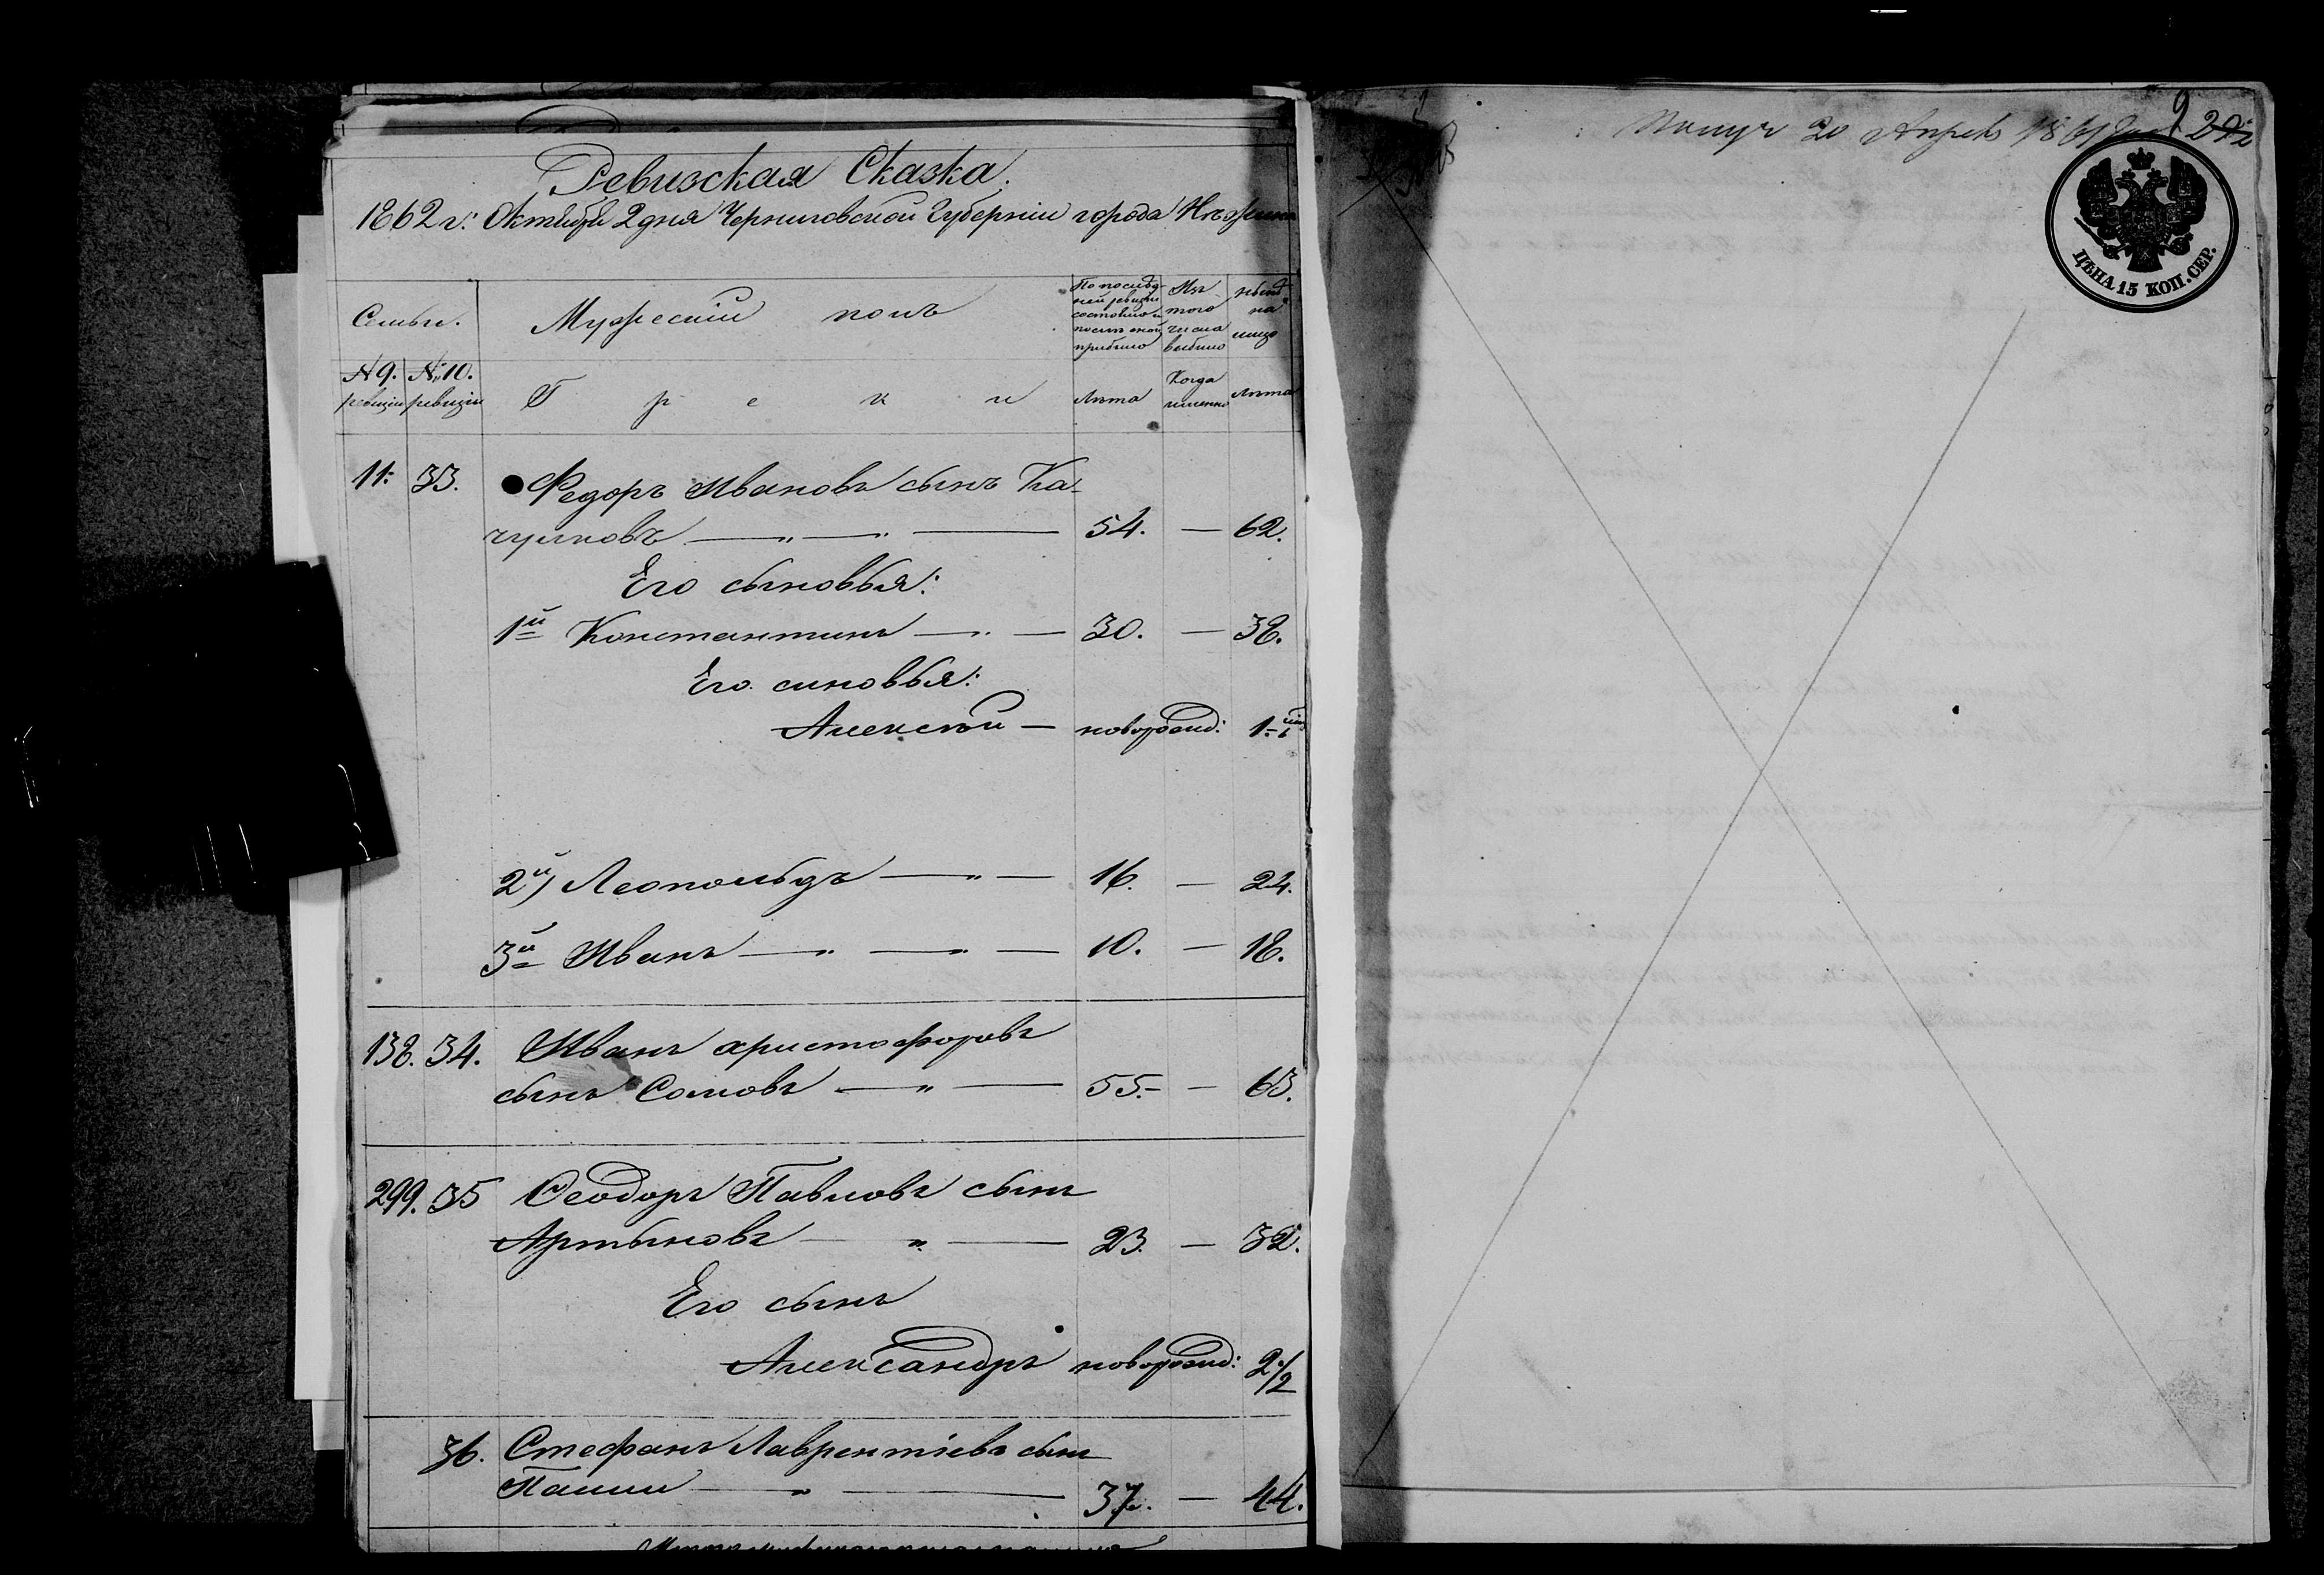 Ревизская Сказка.
1862 г: Октября 2 дня Черниговской Губерніи города Нѣжина
Семьи.
Мужескій полъ
По послѣд-
ней ревизіи
состояло и
послѣ оной
прибыло
Изъ
того
числа
выбыло
на
лицо
№ 9.
ревизіи
№ 10.
ревизіи
Греки
Лѣта
Когда
именно
Лѣта
11. 33. Федоръ Ивановъ сынъ Ка-
чулковъ — " — " — 54. — 62.
Его сыновья:
1й Константинъ — " — 30. — 38.
Его синовья:
Алексѣй — новорожд: 1
2й) Леопольдъ — " — 16. — 24.
3й Иванъ — " — " — 10. — 18.
138. 34. Иванъ христофоровъ
сынъ Сомовъ — " — 55. — 63.
299. 35 Феодоръ Павловъ сынъ
Артыновъ — " — 23. — 32.
Его сынъ
Александръ новорожд: 2 1/2
36. Стефанъ Лаврентіевъ сынъ
Паши — " — 37. — 44.
20 Апрель 1861
9
ЦѢНА 15 КОП. СЕР.